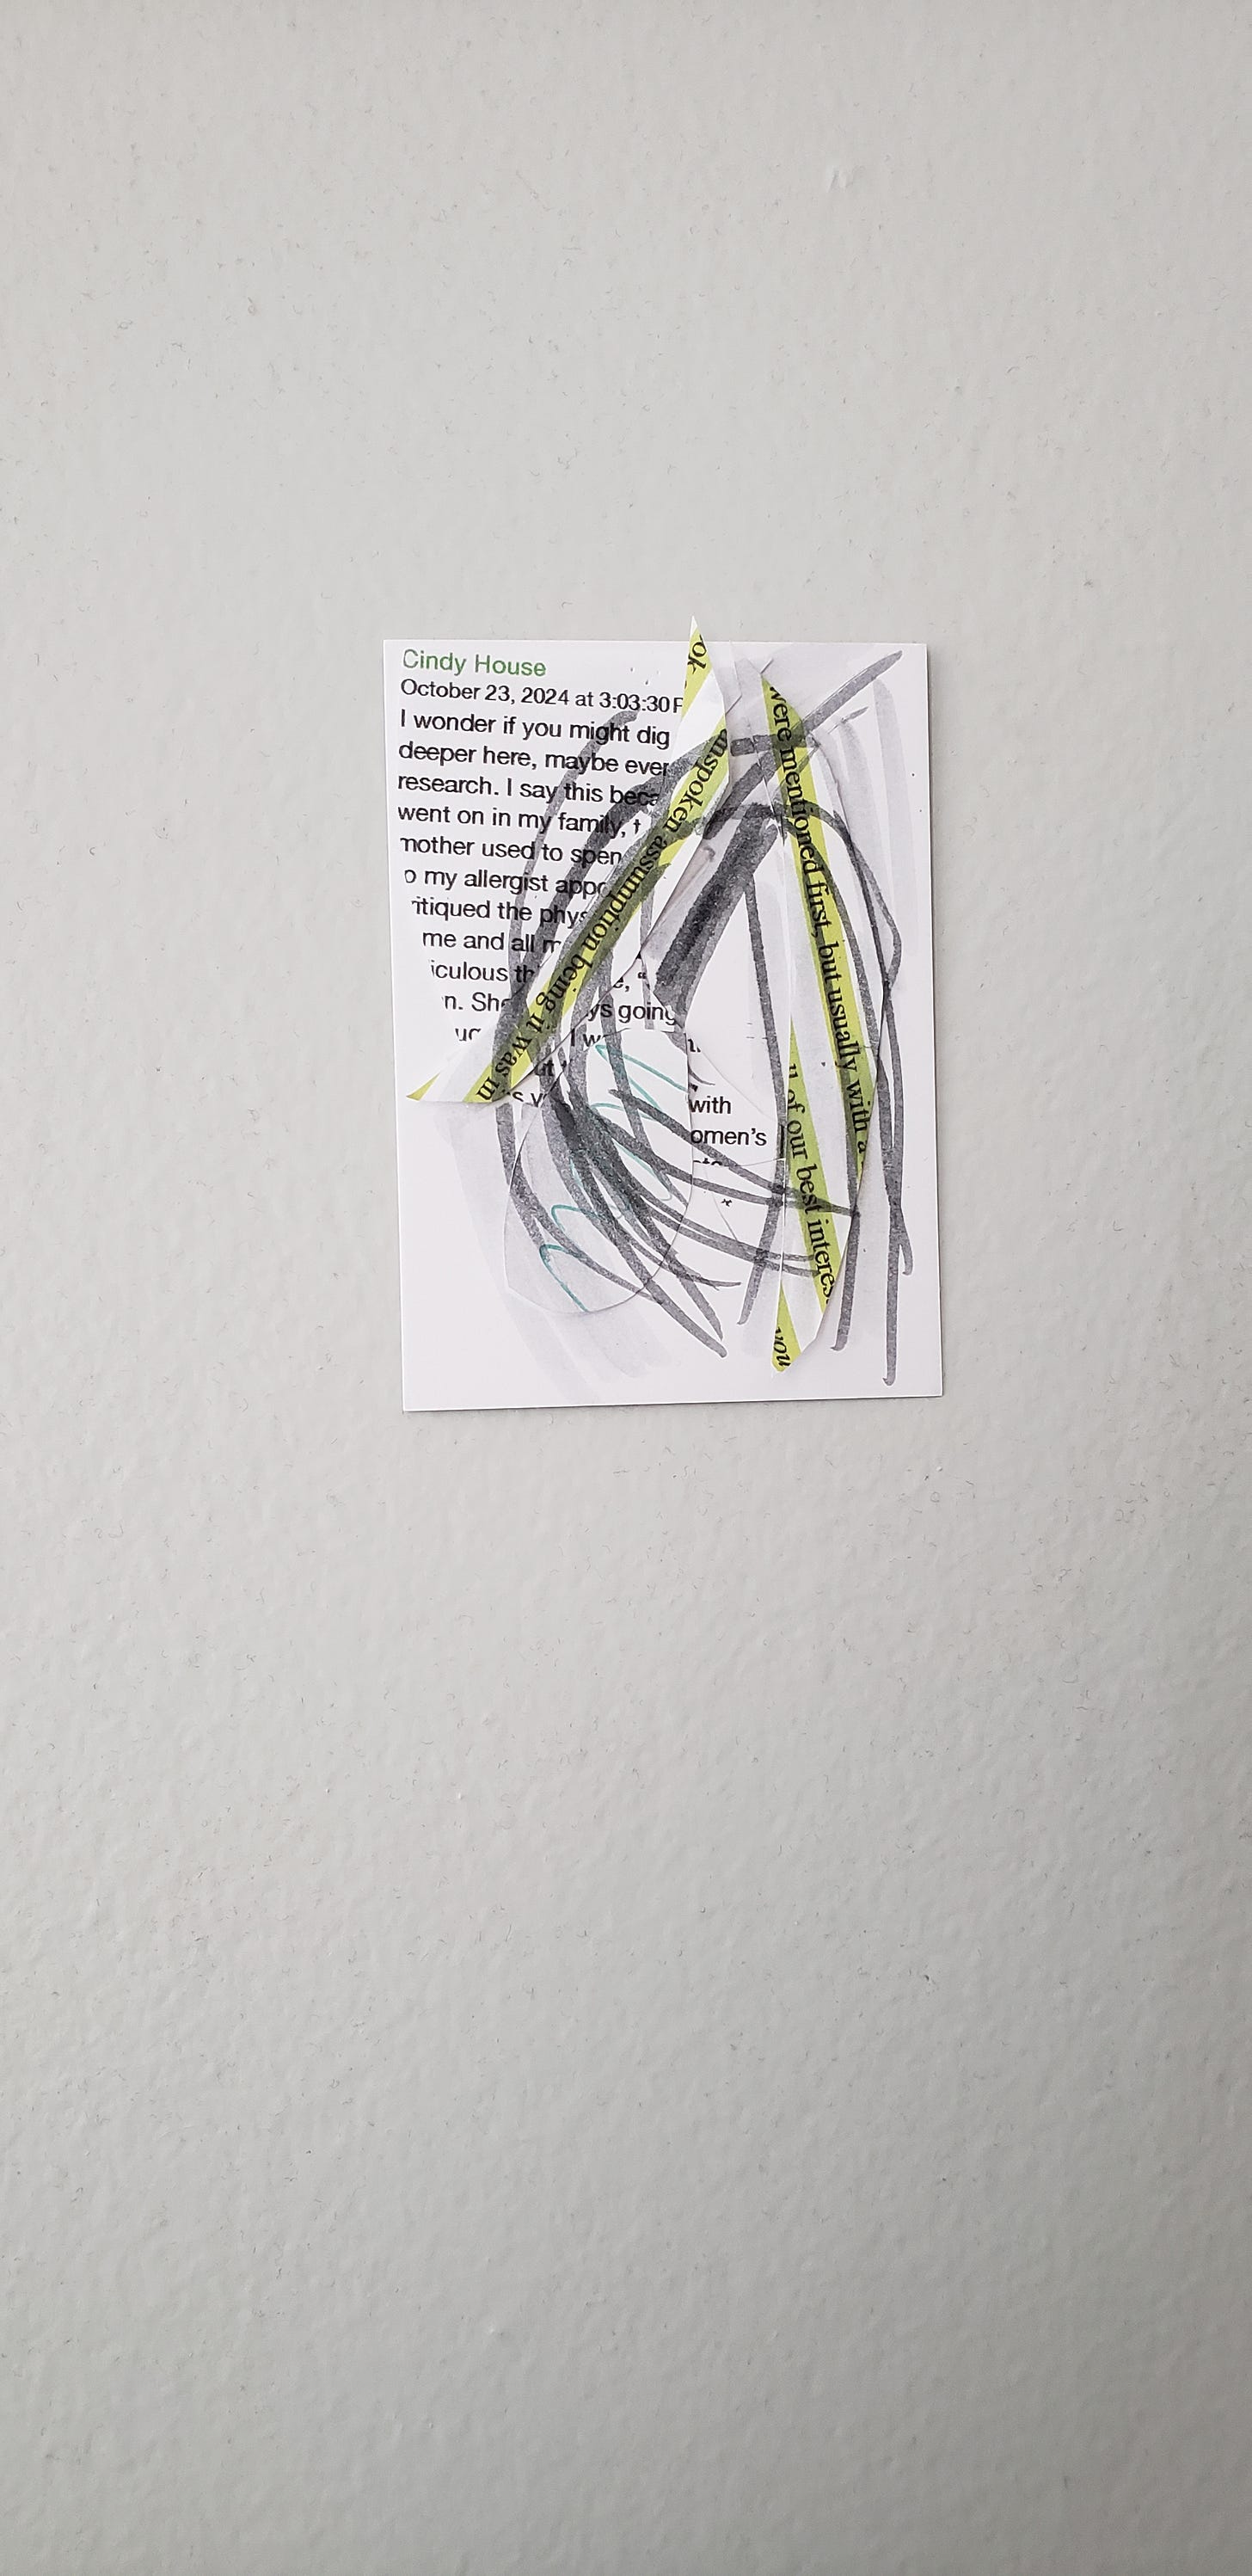 Cindy House
October 23, 2024 at 3:03:30
I wonder if you might dig
deeper here, maybe ever
research. I say this beca
went on in my family, t
mother used to spen
o my allergist appo
ritiqued the phys
me and all m
iculous th
n. She
ys going
with
omen's
ok
unspoken assumption being it was in
were mentioned first, but usually with a
ll of our best interes
you